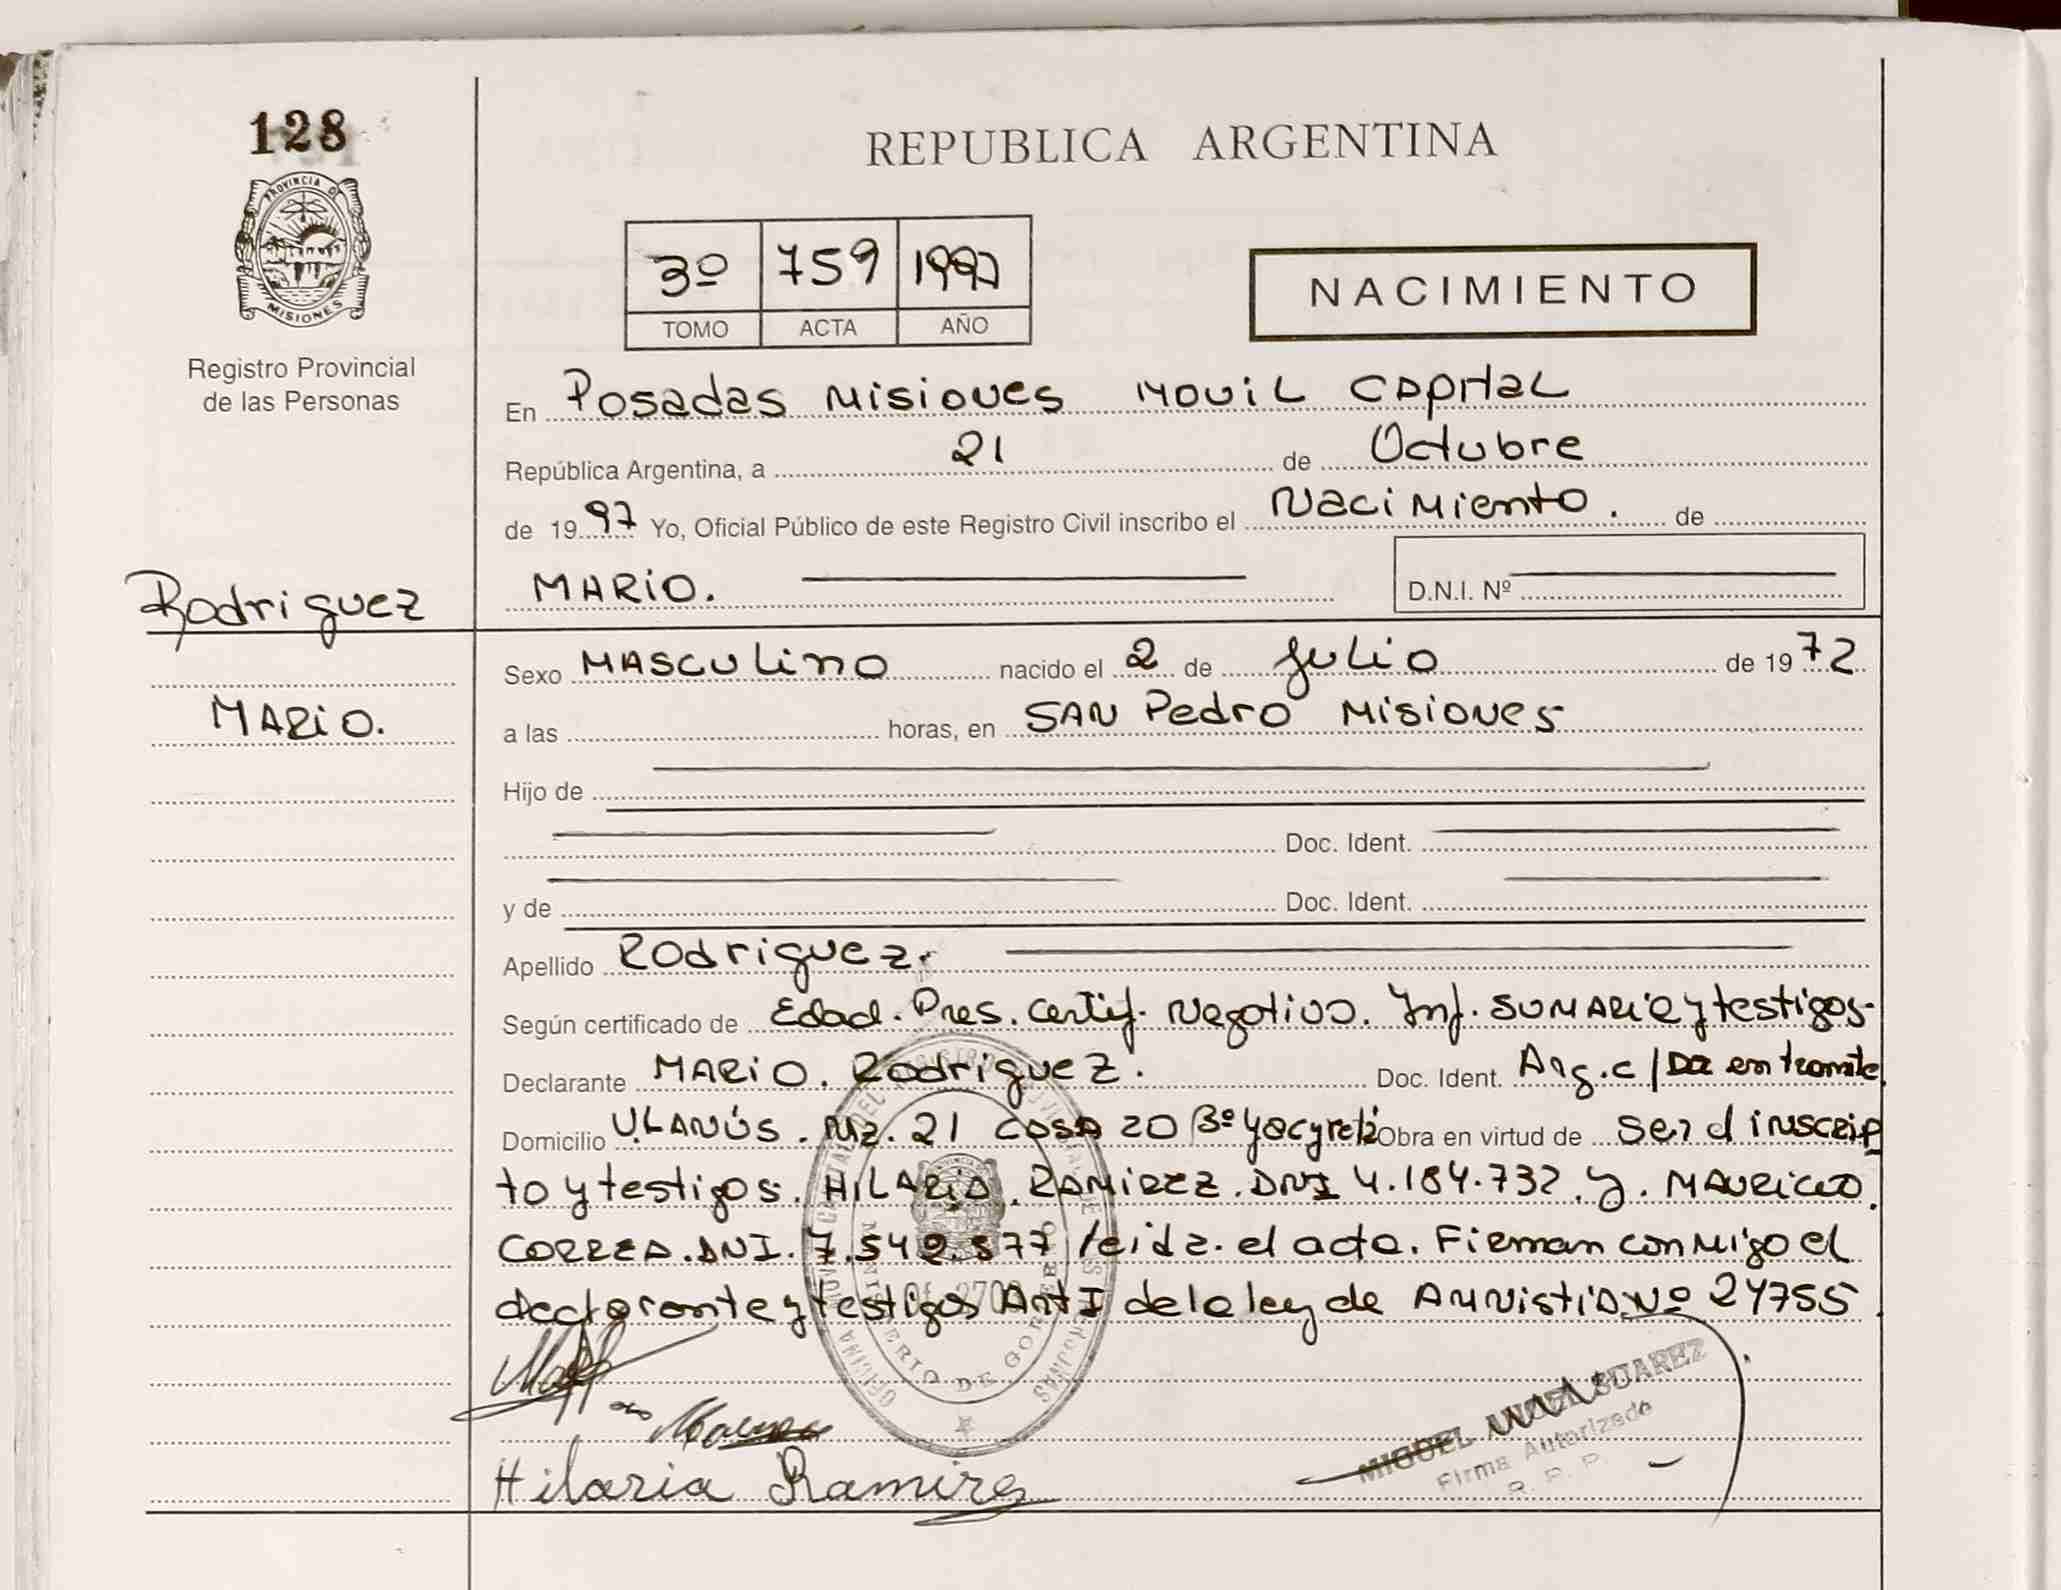 128
REPUBLICA ARGENTINA
PROVINCIA D
MISIONES
Registro Provincial
de las Personas
3º 759 1997
TOMO ACTA AÑO
NACIMIENTO
En Posadas Misiones Movil Capital
República Argentina, a 21 de Octubre
de 1997 Yo, Oficial Público de este Registro Civil inscribo el Nacimiento. de
MARIO. D.N.I. Nº
Rodriguez
MARIO.
Sexo MASCULino nacido el 2 de Julio de 1972
a las horas, en SAN Pedro Misiones
Hijo de
Doc. Ident.
y de Doc. Ident.
Apellido Rodriguez.
Según certificado de Edad. Pres. Certif. Negativo. Inf. SUMARIO y testigos-
Declarante MARIO. Rodriguez. Doc. Ident. Arg. c/ en tramite
Domicilio V. LANÚS. Mz. 21 Casa 20 Bº Yacyretá Obra en virtud de Ser el inscrip
to y testigos. HILARIA. RAMIREZ. DNI 4.184.732. y. MAURICIO
CORREA. DNI. 7.542.577 leida. el acta. Firman conmigo el
declarante y testigos Art I de la ley de AMNistiA Nº 24755.
Hilaria Ramires
MIGUEL SUAREZ
Firma Autorizada
R. P. P.
MINISTERIO DE GOBIERNO